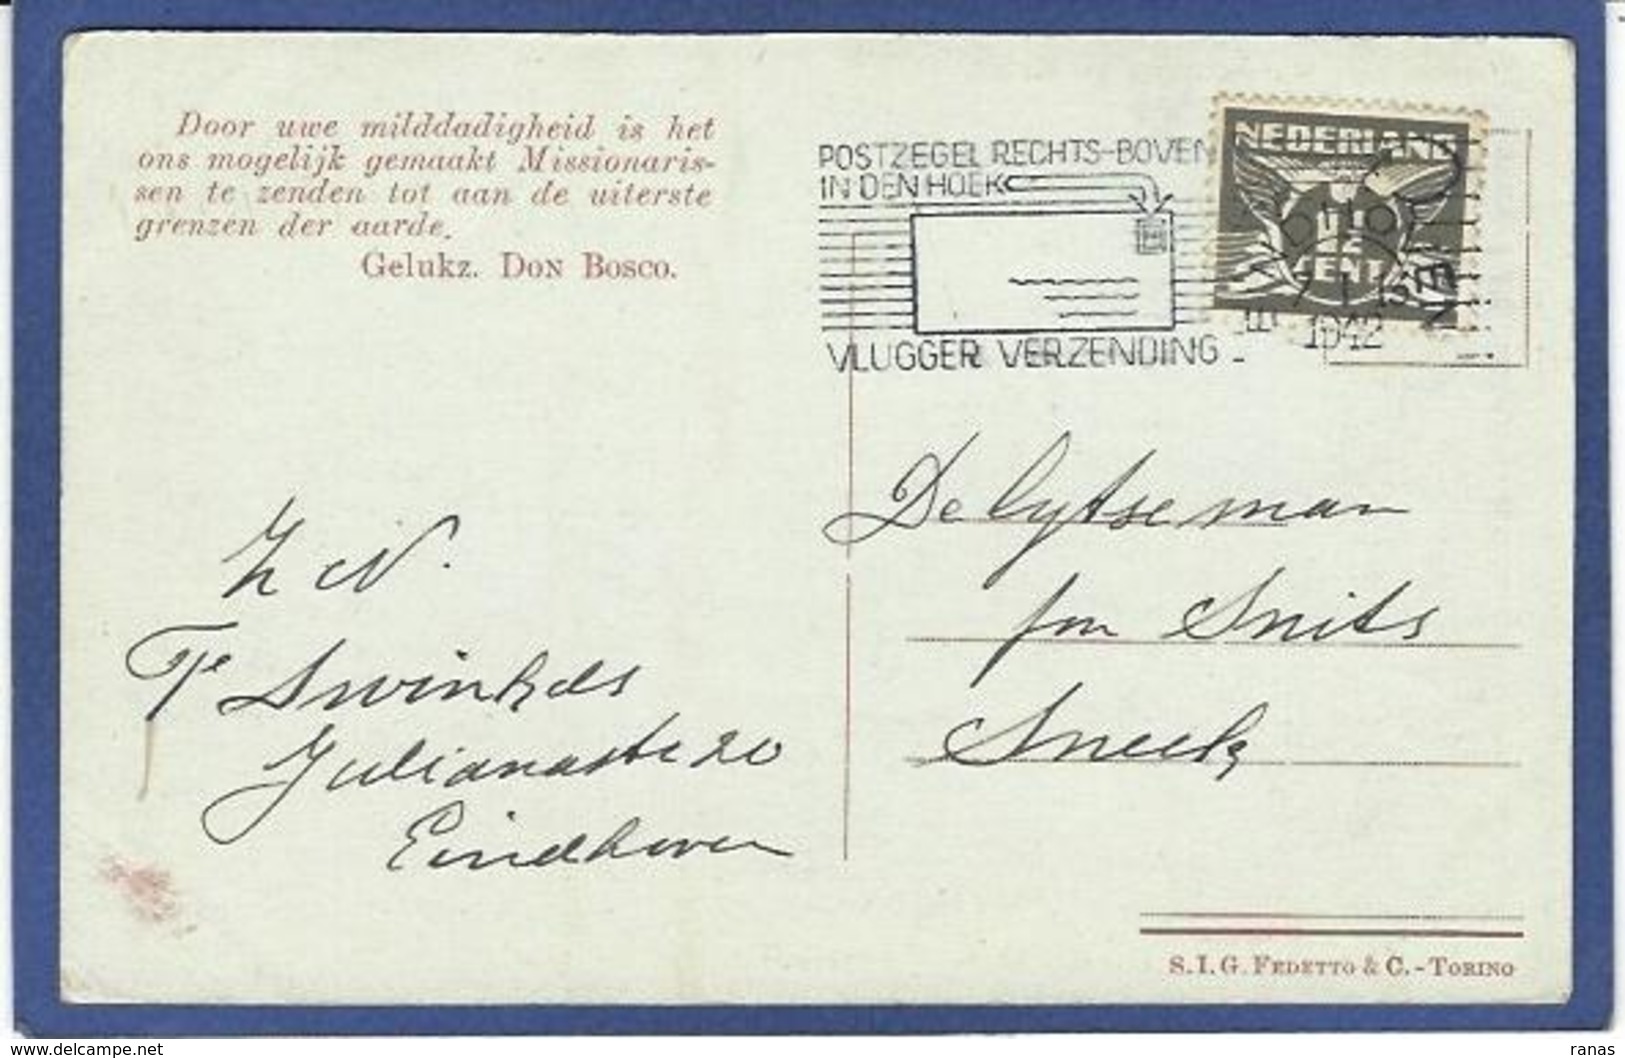 Door uwe milddadigheid is het
ons mogelijk gemaakt Missionaris-
sen te zenden tot aan de uiterste
grenzen der aarde.
Gelukz. Don Bosco.
POSTZEGEL RECHTS-BOVEN
IN DEN HOEK
VLUGGER VERZENDING
NEDERLAND
CENT
1942
De lytse man
fon Snits
Sneek
Z N.
Swinkels
Julianastr 20
Eindhoven
S.I.G. FEDETTO & C. - TORINO
www.delcampe.net
ranas